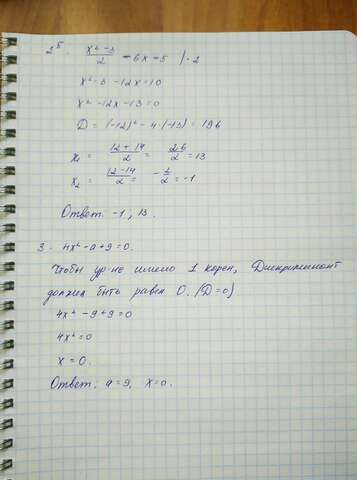 2б. (x² - 3)/2 - 6x = 5 | · 2
x² - 3 - 12x = 10
x² - 12x - 13 = 0
D = (-12)² - 4·(-13) = 196
x₁ = (12 + 14)/2 = 26/2 = 13
x₂ = (12 - 14)/2 = -2/2 = -1
Ответ: -1; 13.
3. 4x² - a + 9 = 0.
Чтобы ур-ие имело 1 корень, Дискриминант
должен быть равен 0. (D = 0)
4x² - 9 + 9 = 0
4x² = 0
x = 0.
Ответ: a = 9, x = 0.